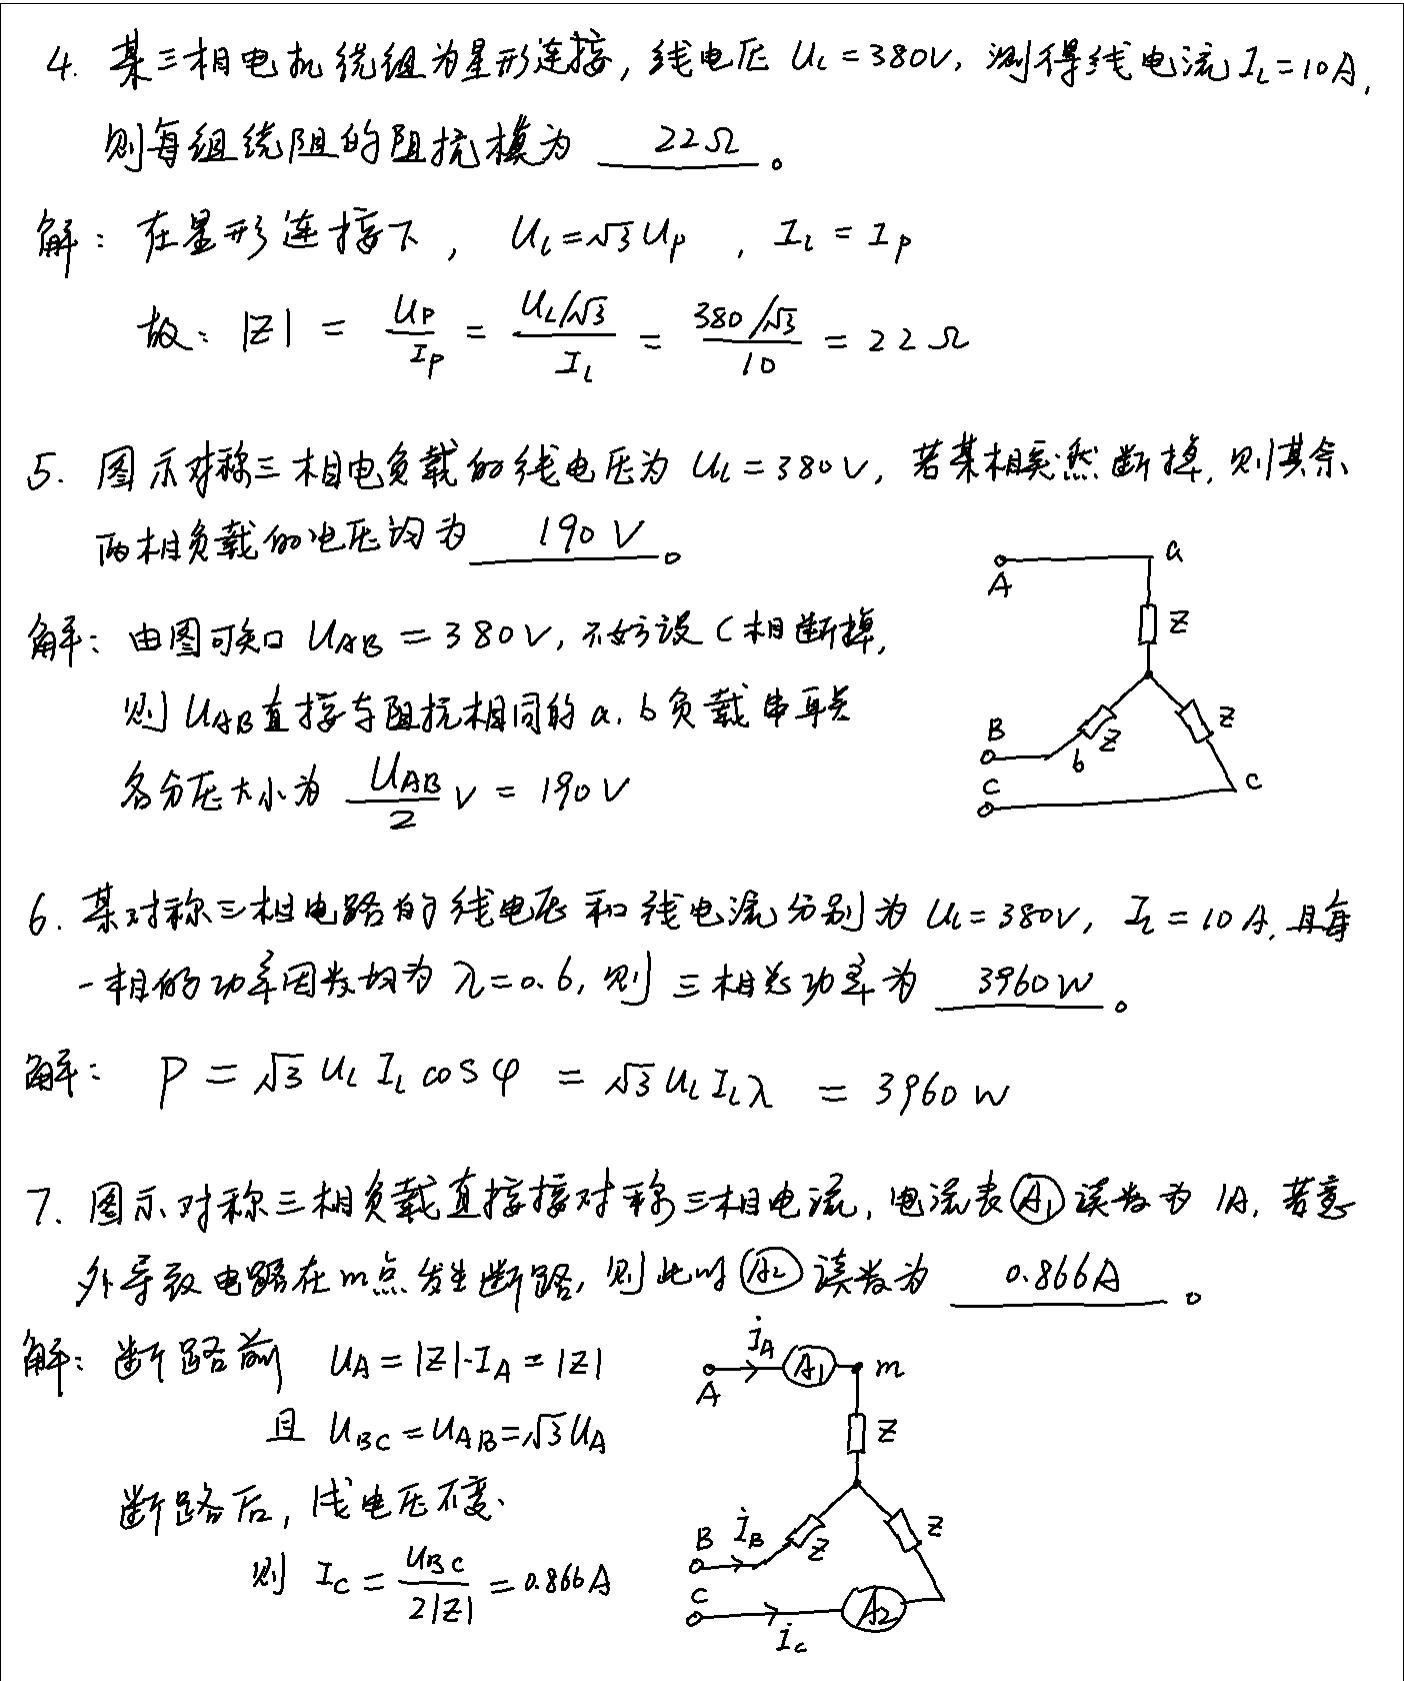 4. 某三相电机绕组为星形连接, 线电压 U_L = 380V, 测得线电流 I_L = 10A,
则每组绕阻的阻抗模为 22Ω 。
解: 在星形连接下, U_L = √3 U_P , I_L = I_P
故: |Z| = U_P/I_P = (U_L/√3)/I_L = (380/√3)/10 = 22Ω
5. 图示对称三相电负载的线电压为 U_L = 380V, 若某相突然断掉, 则其余
两相负载的电压均为 190V 。
A
a
Z
解: 由图可知 U_AB = 380V, 不妨设 C 相断掉,
则 U_AB 直接与阻抗相同的 a, b 负载串联
B
b
Z
Z
各分压大小为 U_AB/2 V = 190V
C
c
6. 某对称三相电路的线电压和线电流分别为 U_L = 380V, I_L = 10A, 且每
一相的功率因数均为 λ = 0.6, 则三相总功率为 3960W 。
解: P = √3 U_L I_L cosφ = √3 U_L I_L λ = 3960W
7. 图示对称三相负载直接接对称三相电流, 电流表 A1 读数为 1A, 若意
外导致电路在 m 点发生断路, 则此时 A2 读数为 0.866A 。
解: 断路前 U_A = |Z|·I_A = |Z|
且 U_BC = U_AB = √3 U_A
断路后, 线电压不变.
则 I_C = U_BC/2|Z| = 0.866A
İ_A
A
A1
m
Z
B
İ_B
Z
Z
C
İ_C
A2